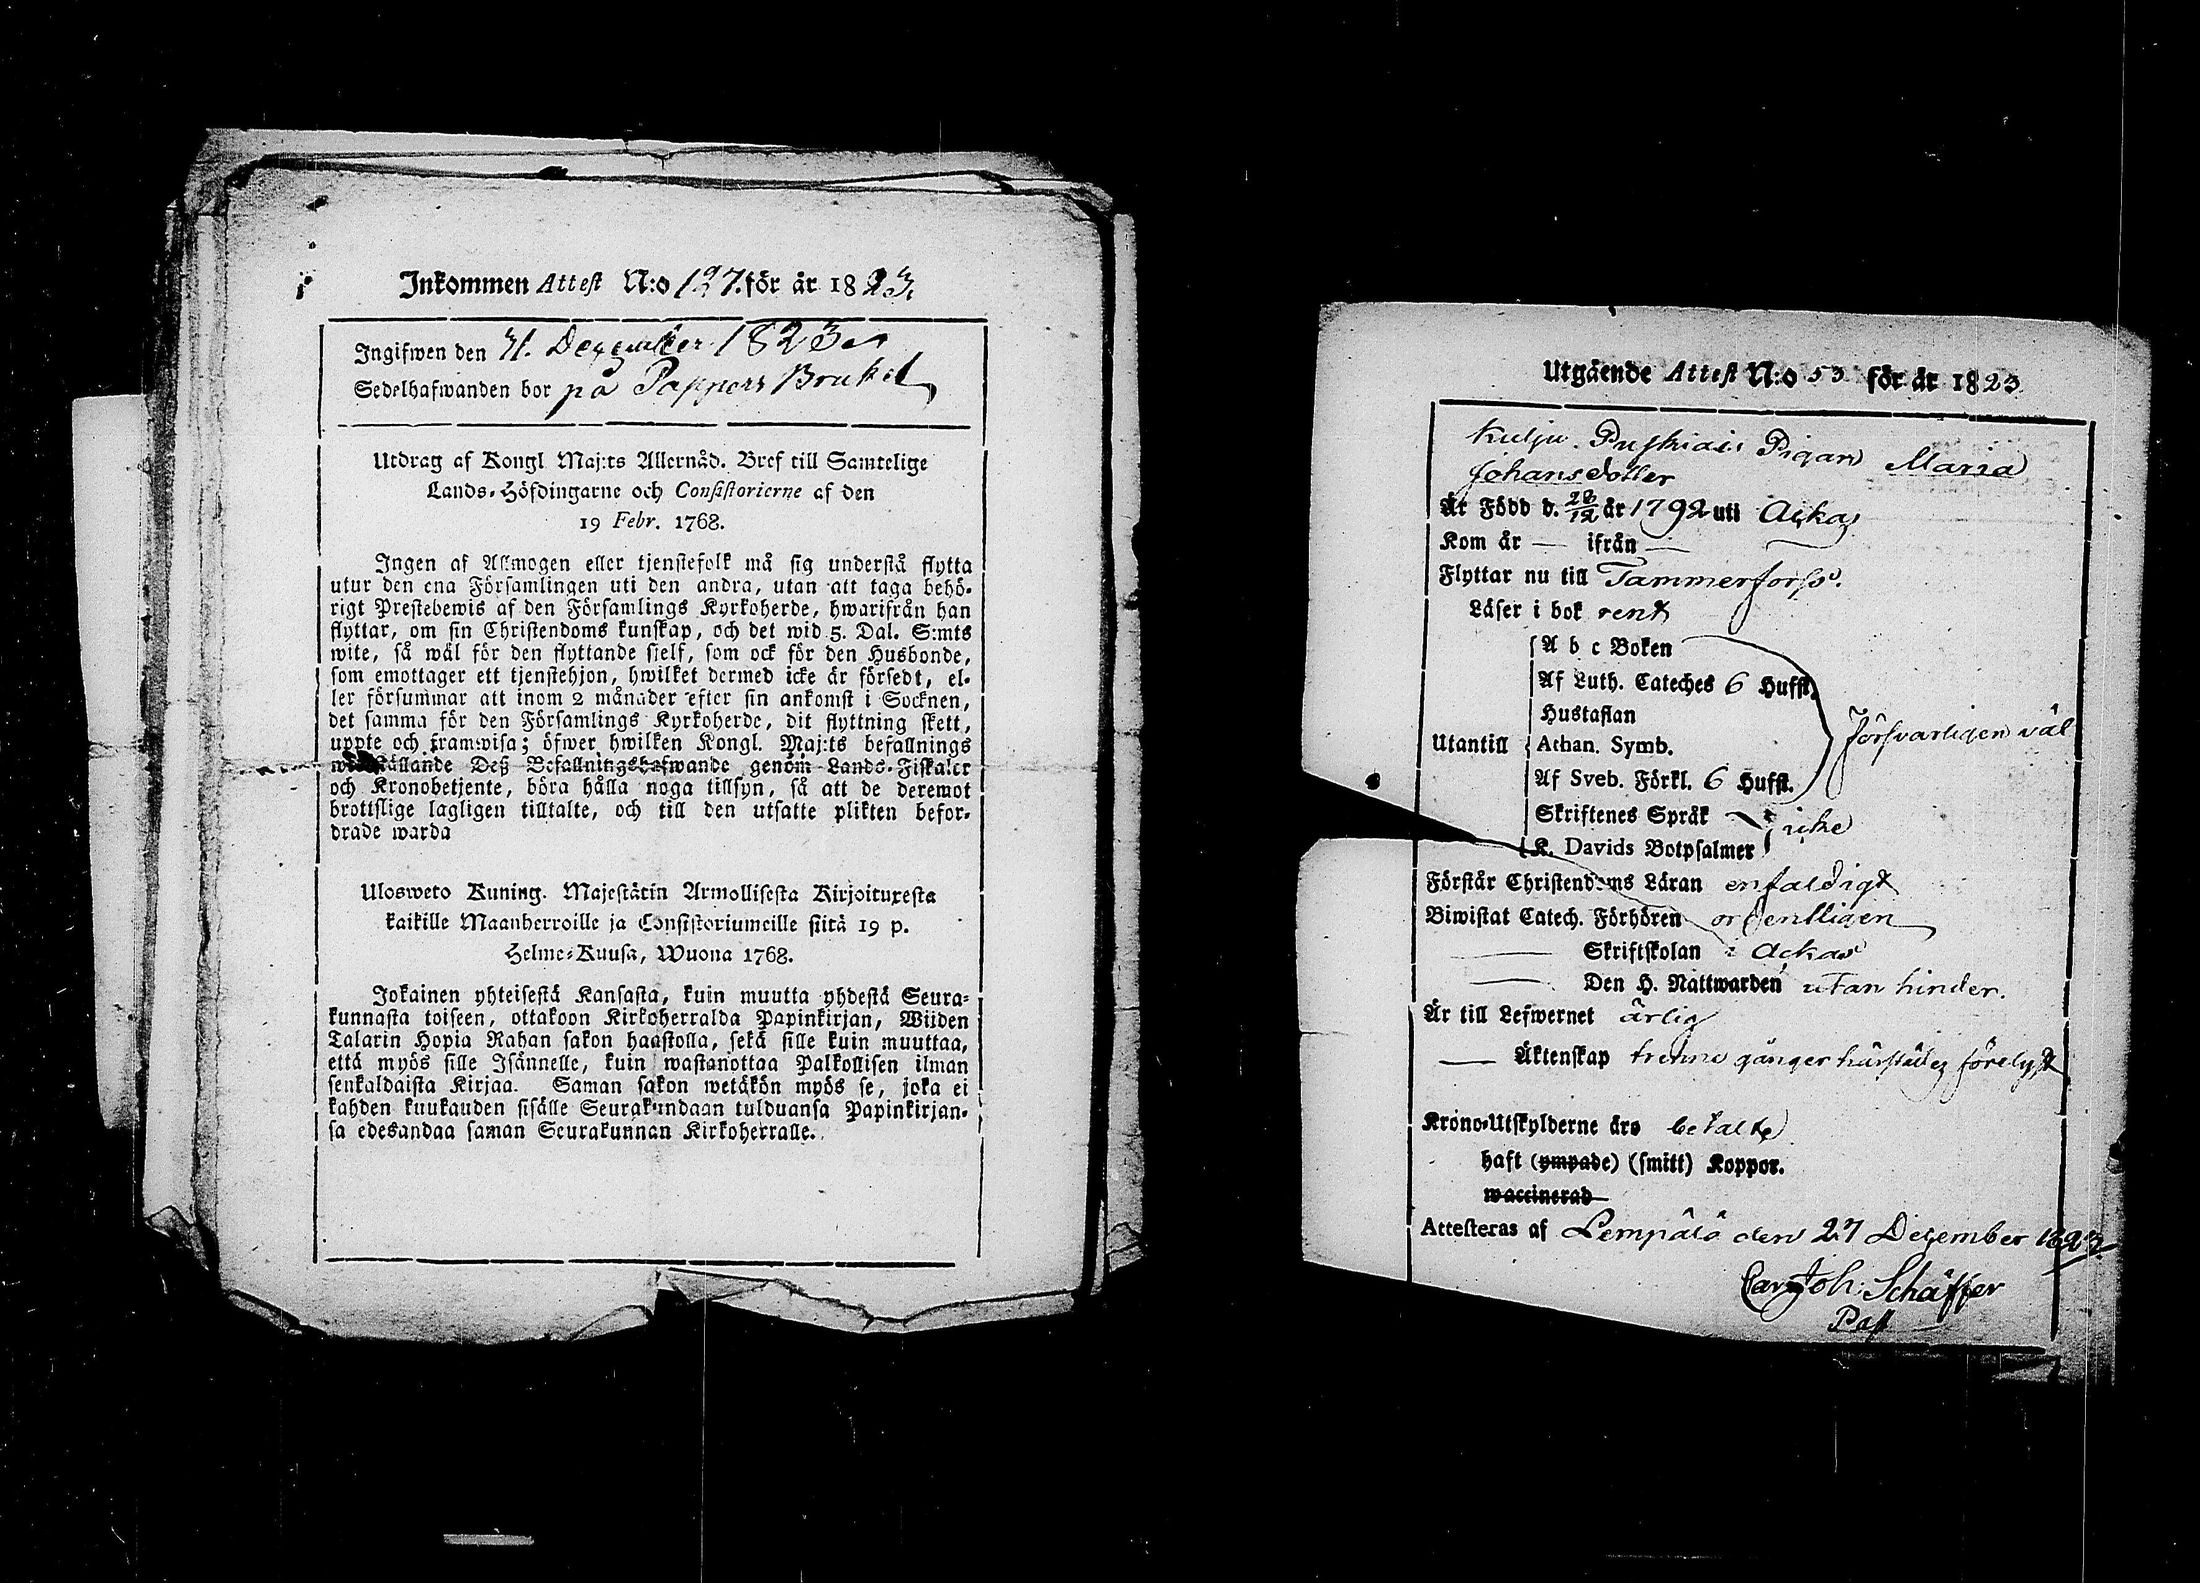 Inkommen Attest N:o 127. för år 1823.
Ingifwen den 31. December 1823
Sedelhafwanden bor på Pappers Bruket
Utdrag af Kongl Maj:ts Allernåd. Bref till Samtelige
Lands-Höfdingarne och Consistorierne af den
19 Febr. 1768.
Ingen af Allmogen eller tjenstefolk må sig understå flytta
utur den ena Församlingen uti den andra, utan att taga behö-
rigt Prestebewis af den Församlings Kyrkoherde, hwarifrån han
flyttar, om sin Christendoms kunskap, och det wid 5. Dal. S:mts
wite, så wäl för den flyttande sjelf, som ock för den Husbonde,
som emottager ett tjenstehjon, hwilket dermed icke är försedt, el-
ler försummar att inom 2 månader efter sin ankomst i Socknen,
det samma för den Församlings Kyrkoherde, dit flyttning skett,
uppte och framwisa; öfwer hwilken Kongl. Maj:ts befallnings
Deß Befallningshafwande genom Lands-Fiskaler
och Kronobetjente, böra hålla noga tillsyn, så att de deremot
brottslige lagligen tilltalte, och till den utsatte plikten befor-
drade warda
Ulosweto Kuning. Majestätin Armollisesta Kirjoituxesta
kaikille Maanherroille ja Consistoriumeille siitä 19 p.
Helme-Kuusa, Wuona 1768.
Jokainen yhteisestä Kansasta, kuin muutta yhdestä Seura-
kunnasta toiseen, ottakoon Kirkoherralda Papinkirjan, Wiiden
Talarin Hopia Rahan sakon haastolla, sekä sille kuin muuttaa,
että myös sille Isännelle, kuin wastanottaa Palkollisen ilman
senkaldaista Kirjaa. Saman sakon wetäkön myös se, joka ei
kahden kuukauden sisälle Seurakundaan tulduansa Papinkirjan-
sa edesandaa saman Seurakunnan Kirkoherralle.
Utgående Attest N:o 53 för år 1823.
Kulju Pigan Maria
Johansdotter
Är Född d. 28/12 år 1792 uti Ackas
Kom år — ifrån —
Flyttar nu till Tammerforss.
Läser i bok rent
A b c Boken
Af Luth. Cateches 6 Hufst.
Hustaflan
Utantill Athan. Symb. försvarligen väl
Af Sveb. Förkl. 6 Hufst.
Skriftenes Språk icke
K. Davids Botpsalmer
Förstår Christendoms Läran enfaldigt
Biwistat Catech. Förhören ordentligen
— Skriftskolan i Ackas
— Den H. Nattwarden utan hinder.
Är till Lefwernet ärlig
— Äktenskap trenne gånger härstädes förelyst
Krono-Utskylderne äro betalte
haft (ympade) (smitt) Koppor.
waccinerad
Attesteras af Lempälä den 27 December 1823
Carl Joh. Schäffer
Past